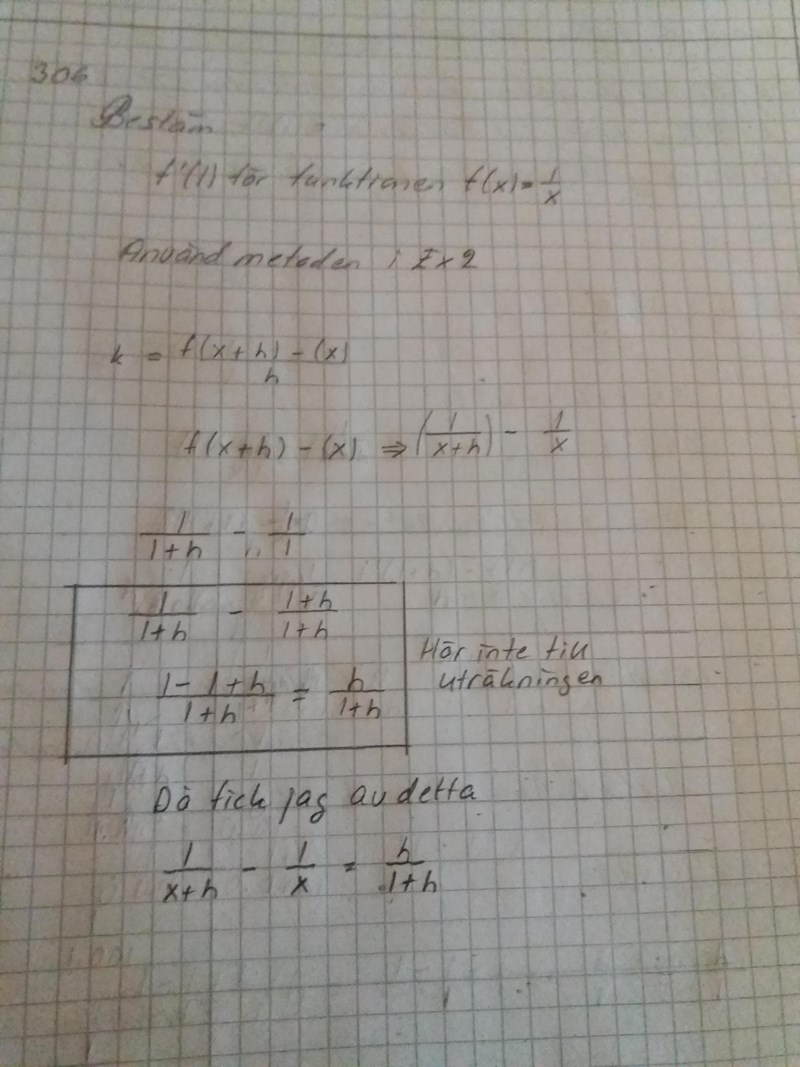 306
Bestäm
f'(1) för funktionen f(x) = 1/x
Använd metoden i Ex 2
k = f(x+h) - (x) / h
f(x+h) - (x) ⇒ (1/(x+h)) - 1/x
1/(1+h) - 1/1
1/(1+h) - (1+h)/(1+h)
(1-1+h)/(1+h) = h/(1+h)
Hör inte till
uträkningen
Då fick jag av detta
1/(x+h) - 1/x = h/(1+h)